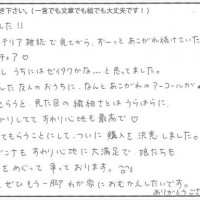 き下さい。（一言でも文章でも絵でも大丈夫です！）
した!!
テリア雑誌で見てから、ずーっとあこがれ続けていた
チェア♡
し うちにはゼイタクかな…と思ってました。
した友人のおうちに、なんとあこがれのアーコールが
せてもらうと、見た目の繊細さとはうらはらに、
かりしてて すわり心地も最高♡
てもらうことにして、ついに購入を決意しました。
すわり心地に大満足で、娘たちも
をめぐって争っております。
ぜひもう一脚わが家におむかえしたいです。
ありがとうござ